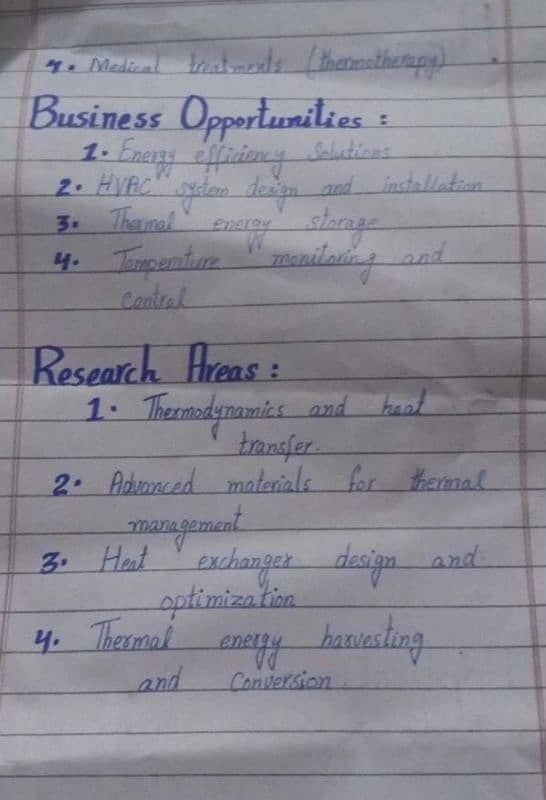 4. Medical treatments (thermotherapy)
Business Opportunities :
1. Energy efficiency Solutions
2. HVAC system design and installation
3. Thermal energy storage
4. Temperature monitoring and
Control
Research Areas :
1. Thermodynamics and heat
transfer.
2. Advanced materials for thermal
management
3. Heat exchanger design and
optimization
4. Thermal energy harvesting
and Conversion.